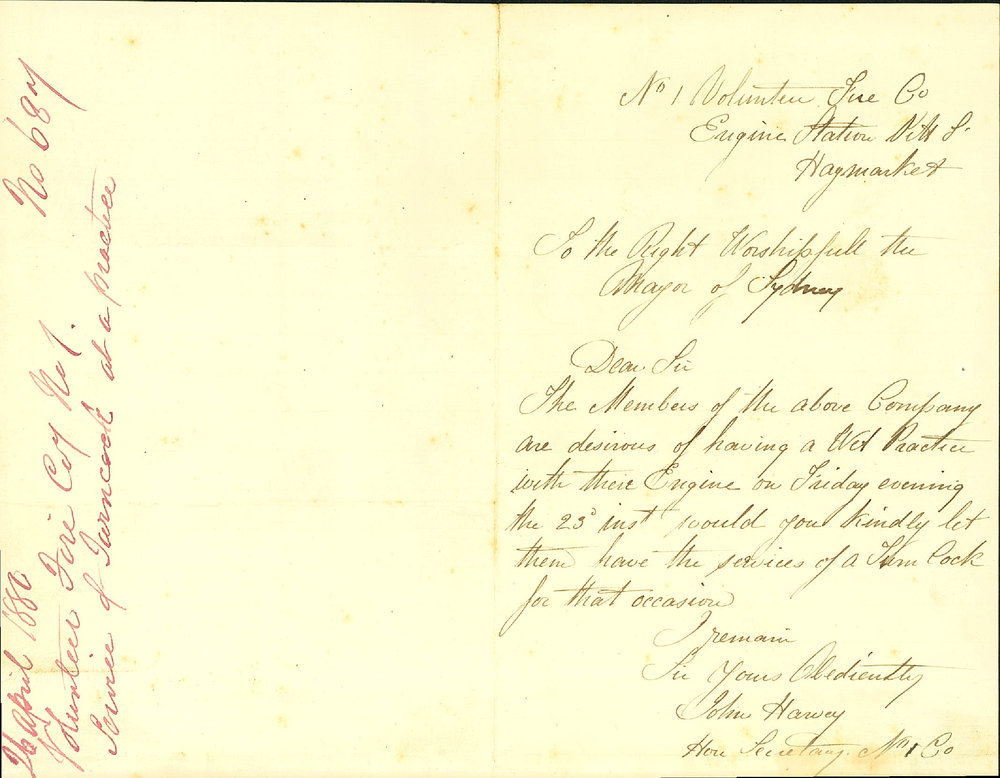 26 April 1880
Volunteer Fire Coy No 1. No 687
Service of Turncock at a practice
No 1 Volunteer Fire Co
Engine Station Pitt St
Haymarket
To the Right Worshipfull the
Mayor of Sydney
Dear Sir
The Members of the above Company
are desirous of having a Wet Practice
with their Engine on Friday evening
the 23d inst would you kindly let
them have the services of a Turn Cock
for that occasion
I remain
Sir Yours Obediently
John Harvey
Hon Secretary. No 1 Co